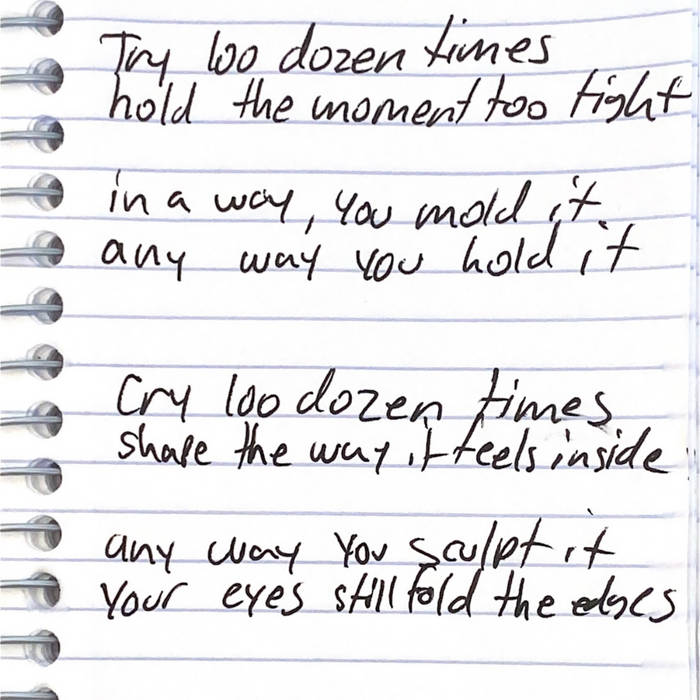 Try 100 dozen times
hold the moment too tight
in a way, you mold it
any way you hold it
Cry 100 dozen times
shape the way it feels inside
any way you sculpt it
Your eyes still fold the edges